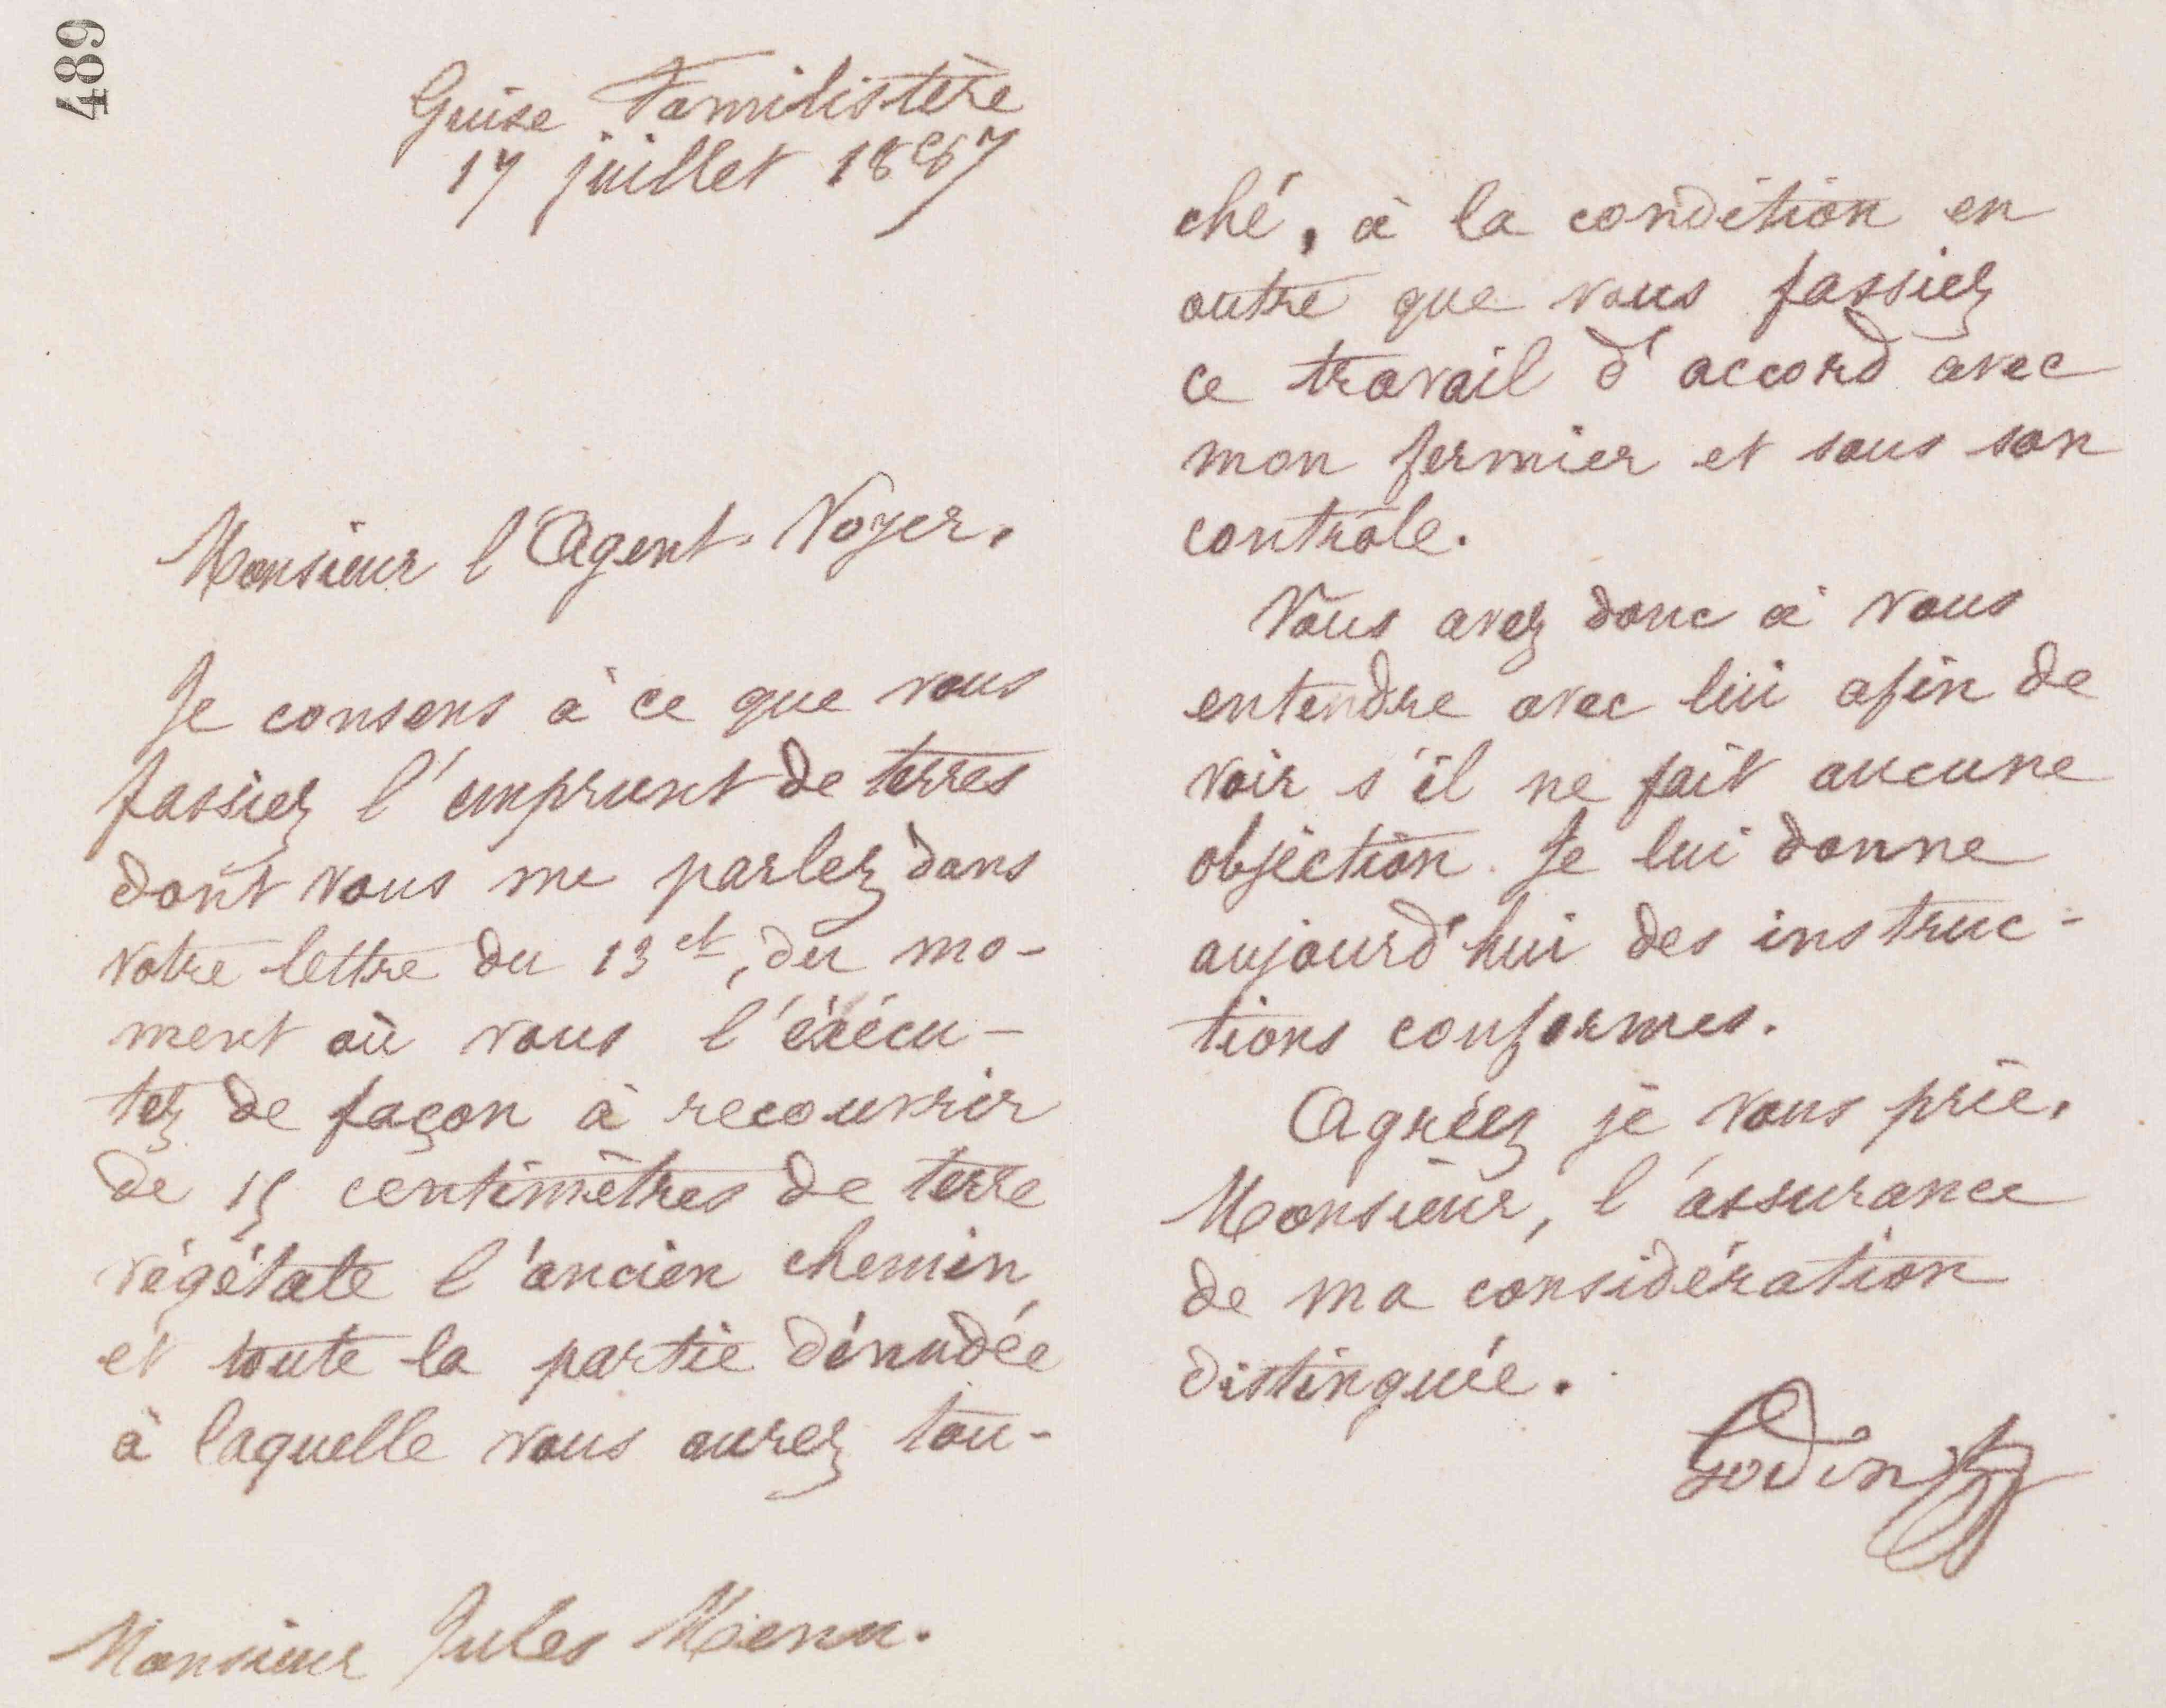 489
Guise Familistère
17 juillet 1887
Monsieur l'Agent-Voyer,
Je consens à ce que vous
fassiez l'emprunt de terres
dont vous me parlez dans
votre lettre du 13 ct, du mo-
ment où vous l'éxécu-
tez de façon à recouvrir
de 15 centimètres de terre
végétate l'ancien chemin,
et toute la partie dénudée
à laquelle vous aurez tou-
Monsieur Jules Menu.
ché, à la condition en
outre que vous fassiez
ce travail d'accord avec
mon fermier et sous son
contrôle.
Vous avez donc à vous
entendre avec lui afin de
voir s'il ne fait aucune
objection. Je lui donne
aujourd'hui des instruc-
tions conformes.
Agréez je vous prie,
Monsieur, l'assurance
de ma considération
distinguée.
Godin